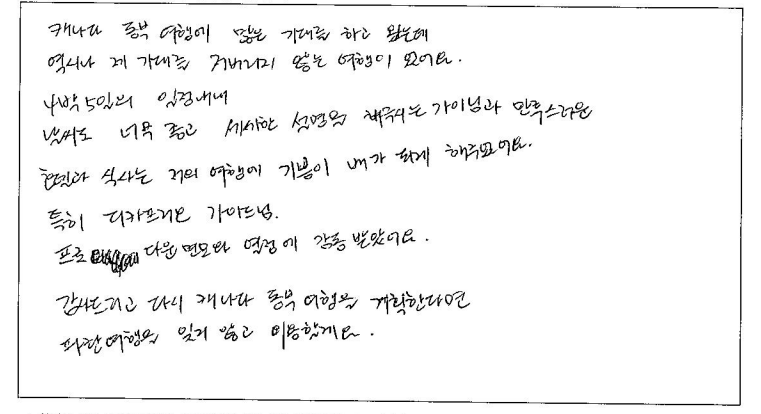 캐나다 동부 여행에 많은 기대를 하고 왔는데
역시나 제 기대를 저버리지 않는 여행이 였어요.
4박5일의 일정내내
날씨도 너무 좋고 세세한 설명을 해주시는 가이님과 만족스러운
호텔과 식사는 저의 여행에 기쁨이 배가 되게 해주었어요.
특히 디카프리오 가이드님.
프로 다운 면모와 열정에 감동 받았어요.
감사드리고 다시 캐나다 동부 여행을 계획한다면
파란여행을 잊지 않고 이용할게요.